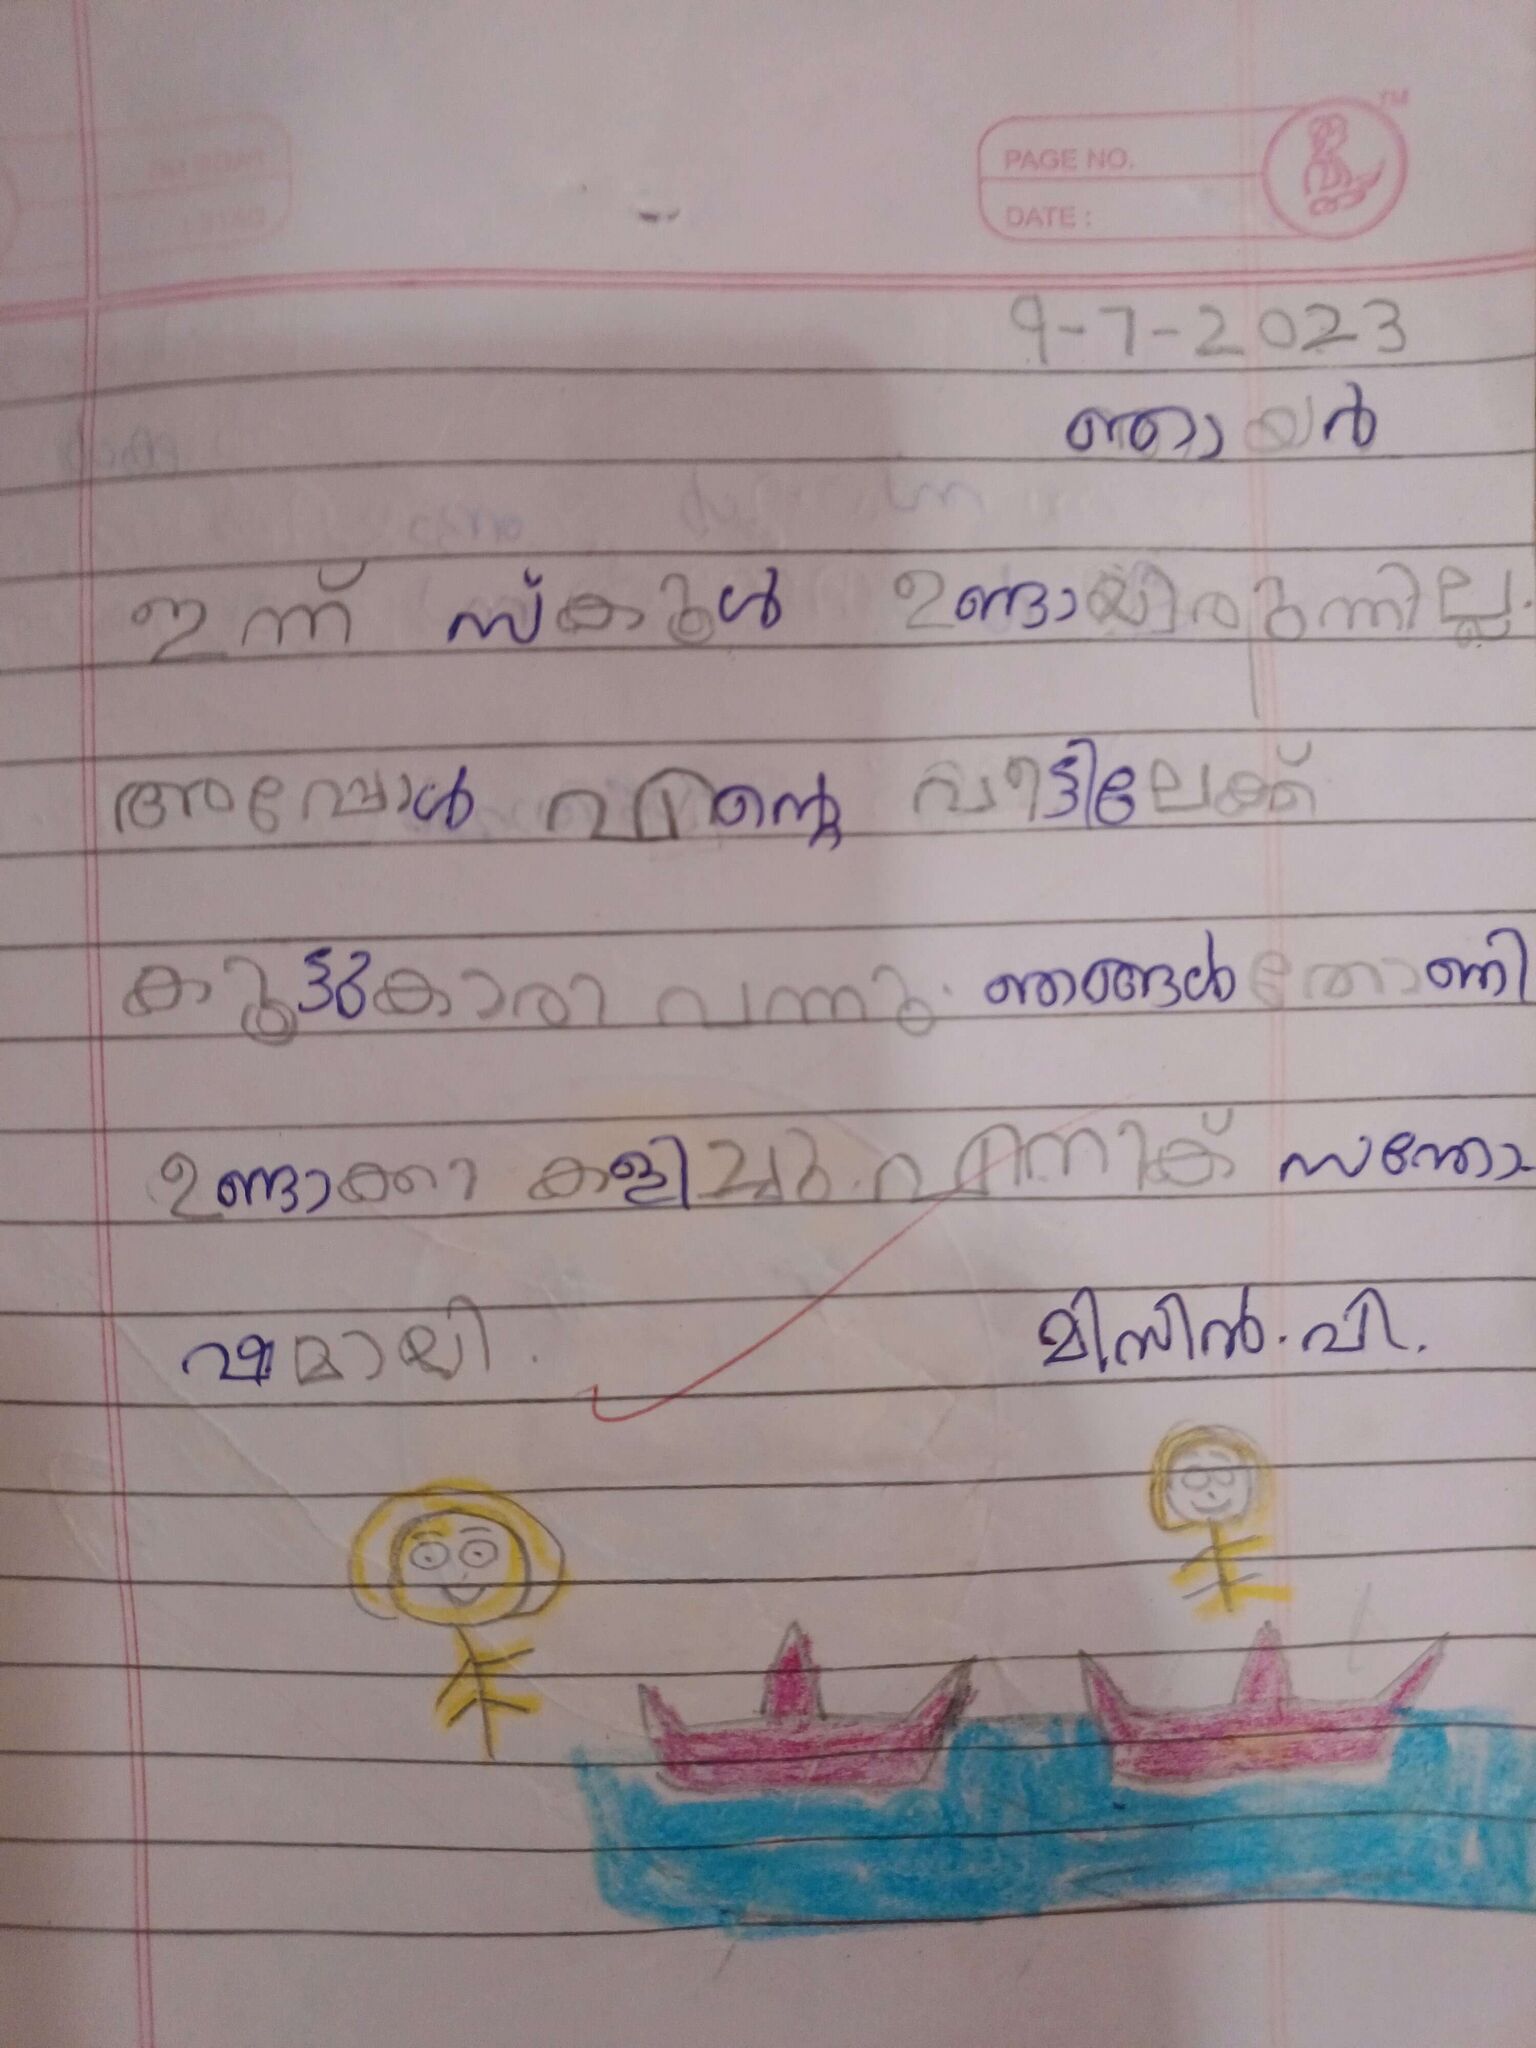 PAGE NO.
DATE :
9-7-2023
ഞായർ
ഇന്ന് സ്കൂൾ ഉണ്ടായിരുന്നില്ല.
അപ്പോൾ എന്റെ വീട്ടിലേക്ക്
കൂട്ടുകാരി വന്നു. ഞങ്ങൾ തോണി
ഉണ്ടാക്കി കളിച്ചു. എനിക്ക് സന്തോ-
ഷമായി.
മിസിൻ. പി.